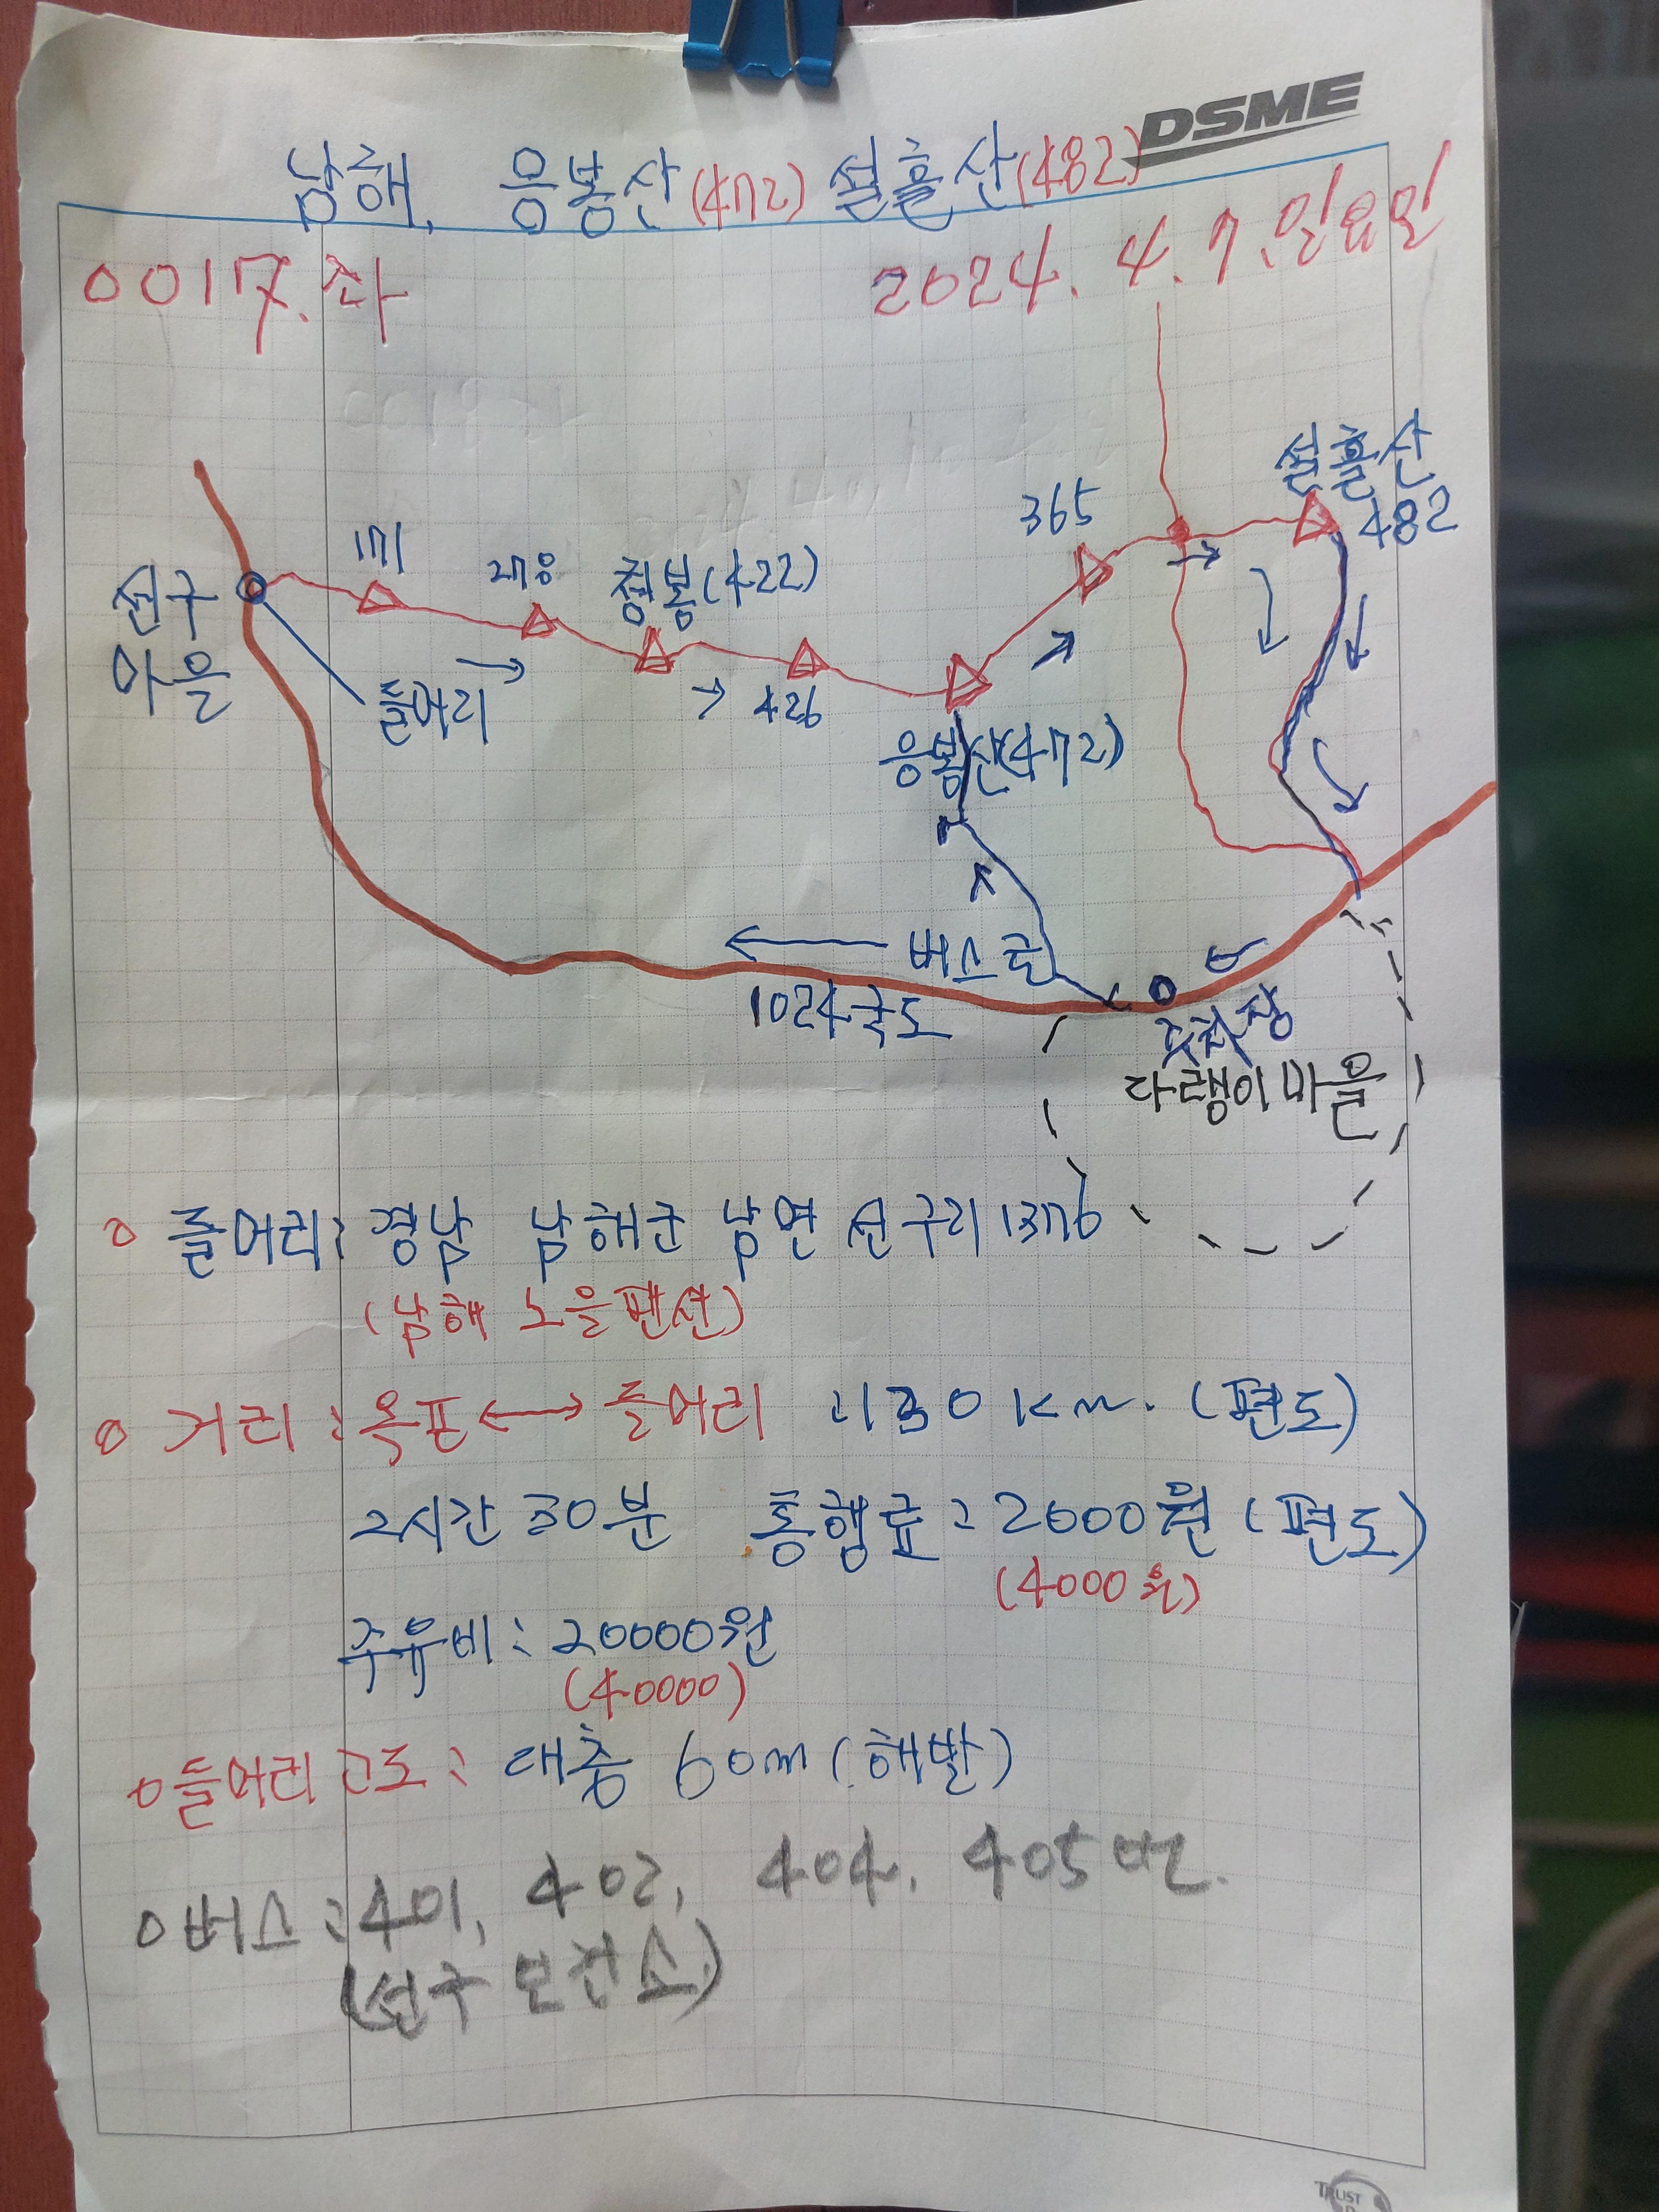 DSME
남해, 응봉산(472) 설흘산(482)
0017.좌
2024.4.7.일요일
설흘산
482
365
171
278
첨봉(422)
선구
마을
들머리
426
응봉산(472)
버스로
1024국도
주차장
다랭이마을
o 들머리: 경남 남해군 남면 선구리 1376
(남해 노을펜션)
o 거리: 옥포 ↔ 들머리 : 130km. (편도)
2시간 30분 통행료: 2000원 (편도)
(4000원)
주유비: 20000원
(40000)
o 들머리 고도: 대충 60m (해발)
o 버스: 401, 402, 404, 405번.
(선구 보건소)
TRUST